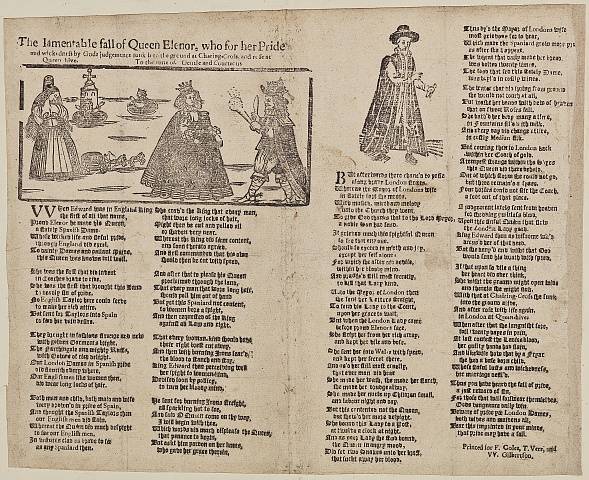 The lamentable fall of Queen Elenor, who for her Pride
and wickedness by Gods judgements sunk into the ground at Charing-Cross, and rose at
Queen hive. To the tune of Gentle and Courteous
WHen Edward was in England King
the first of all that name,
Proud Elenor he made his Queen,
a stately Spanish Dame:
Whose wicked life and sinful pride,
through England did excel,
To dainty Dames and gallant
this Queen was known full well.
She was the first that did invent
in Coaches brave to ride,
She was the first that brought this land
to deadly sin of pride.
No English Taylor here could serve
to make her rich attire,
But sent for Taylors into Spain
to feed her vain desire.
They brought in fashions strange and new
with golden Garments bright,
The Farthingale and mighty Ruffs,
with Gowns of rich delight.
Our London Dames in Spanish pride
did flourish every where,
Our Englishmen like women then,
did wear long locks of hair.
Both man and child, both maid and wife
were drown'd in pride of Spain,
And thought the Spanish Taylors then
our English men did stain.
Whereat the Queen did much despight
to see our English men,
In vestures clad as brave to see
as any Spaniard then.
She crav'd the King that every man,
that wore long locks of hair,
Might then be cut and polled all
or shaven very near.
Whereat the King did seem content,
and soon thereto agreed,
And first commanded that his own
should then be cut with speed.
And after that to please his Queen
proclaimed through the land,
That every man that wore long hair,
should poll him out of hand.
But yet this Spaniard not content,
to women bore a spight,
And then requested of the King
against all Law and right.
That every woman kind should have
their right breast cut away,
And then with burning Irons sear'd,
the blood to stanch and stay.
King Edward then perceiving well
her spight to womankind,
Devised soon by policy,
to turn her bloody mind.
He sent for burning Irons straight,
all sparkling hot to see,
And said O Queen come on thy way,
I will begin with thee.
Which words did much displease the Queen,
that penance to begin,
But askt him pardon on her knees,
who gave her grace therein.
BUt afterwards there chanc'd to passe
along brave London streets,
Whereas the Mayor of Londons wife
in stately sort she meets.
With musick, mirth and melody
unto the Church they went,
To give God thanks that to the Lord Mayor
a noble son had sent.
It grieved much this spightful Queen,
to see that any one,
Should so exceed in mirth and joy,
except her self alone:
For which she after did devise,
within her bloody mind,
And practis'd still most secretly,
to kill that Lady kind.
Unto the Mayor of London then
she sent her Letters straight,
To send his Lady to the Court,
upon her grace to wait.
But when the London Lady came
before proud Elenor's face,
She stript her from her rich array,
and kept her vile and base.
She sent her into Wales with speed,
and kept her secret there,
And us'd her still most cruelly,
that ever man did hear
She made her wash, she made her starch,
she made her drudge alway,
She made her nurse up Children small,
and labour night and day.
But this contented not the Queen,
but shew'd her more despight,
She bound this Lady to a Post,
at twelve a clock at night.
And as poor Lady she stood bound,
the Queen in angry mood,
Did set two Snakes unto her breast,
that suckt away her blood.
Thus dy'd the Mayor of Londons wife
most grievous for to hear,
Which made the Spaniard grow more proud
as after shall appear.
The wheat that daily made her bread,
was bolted twenty times,
The food that fed this stately Dame,
was boyl'd in costly wines.
The water that did spring from ground
she would not touch at all,
But washt her hands with dew of heaven
that on sweet Roses fall.
She bath'd her body many a time,
in Fountains fill'd with milk,
And every day did change attire,
in costly Median silk.
But coming then to London back
within her Coach of gold,
A tempest strange within the Skyes
this Queen did there behold.
Out of which storm she could not go,
but there remain'd a space,
Four horses could not stir the Coach
a foot out of that place.
A judgement lately sent from heaven
for shedding guiltless blood,
Upon this sinful Queen that slew
the London Lady good.
King Edward then as wisdome will'd
accus'd her of that deed,
But she deny'd and wisht that God
would send his wrath with speed.
If that upon so vile a thing
her heart did ever think,
She wisht the ground might open wide
and therein she might sink.
With that at Charing-Cross she sunk
into the ground alive,
And after rose with life again
in London at Queen hive.
When after that she languisht sore,
full twenty dayes in pain,
At last confest the Ladies blood,
her guilty hands had slain,
And likewise how that by a Fryar
she had a base born child,
Whose sinful lusts and wickedness,
her marriage
Thus you have heard the fall of pride,
a just reward of sin,
For those that will forswear themselves,
Gods vengeance daily win.
Beware of pride you London Dames,
both wives and maidens all,
Bear this imprinted in your minds,
that pride may have a fall.
Printed for F. Coles, T. Vere, and
W. Gilbertson.